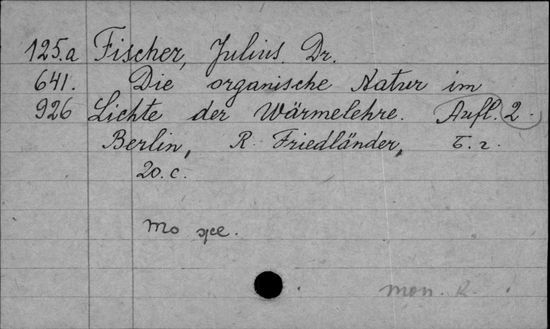 125.a Fischer, Julius. Dr.
641. Die organische Natur im
926 Lichte der Wärmelehre. Aufl. 2.
Berlin, R. Friedländer, б. г.
20. c.
mon. K.